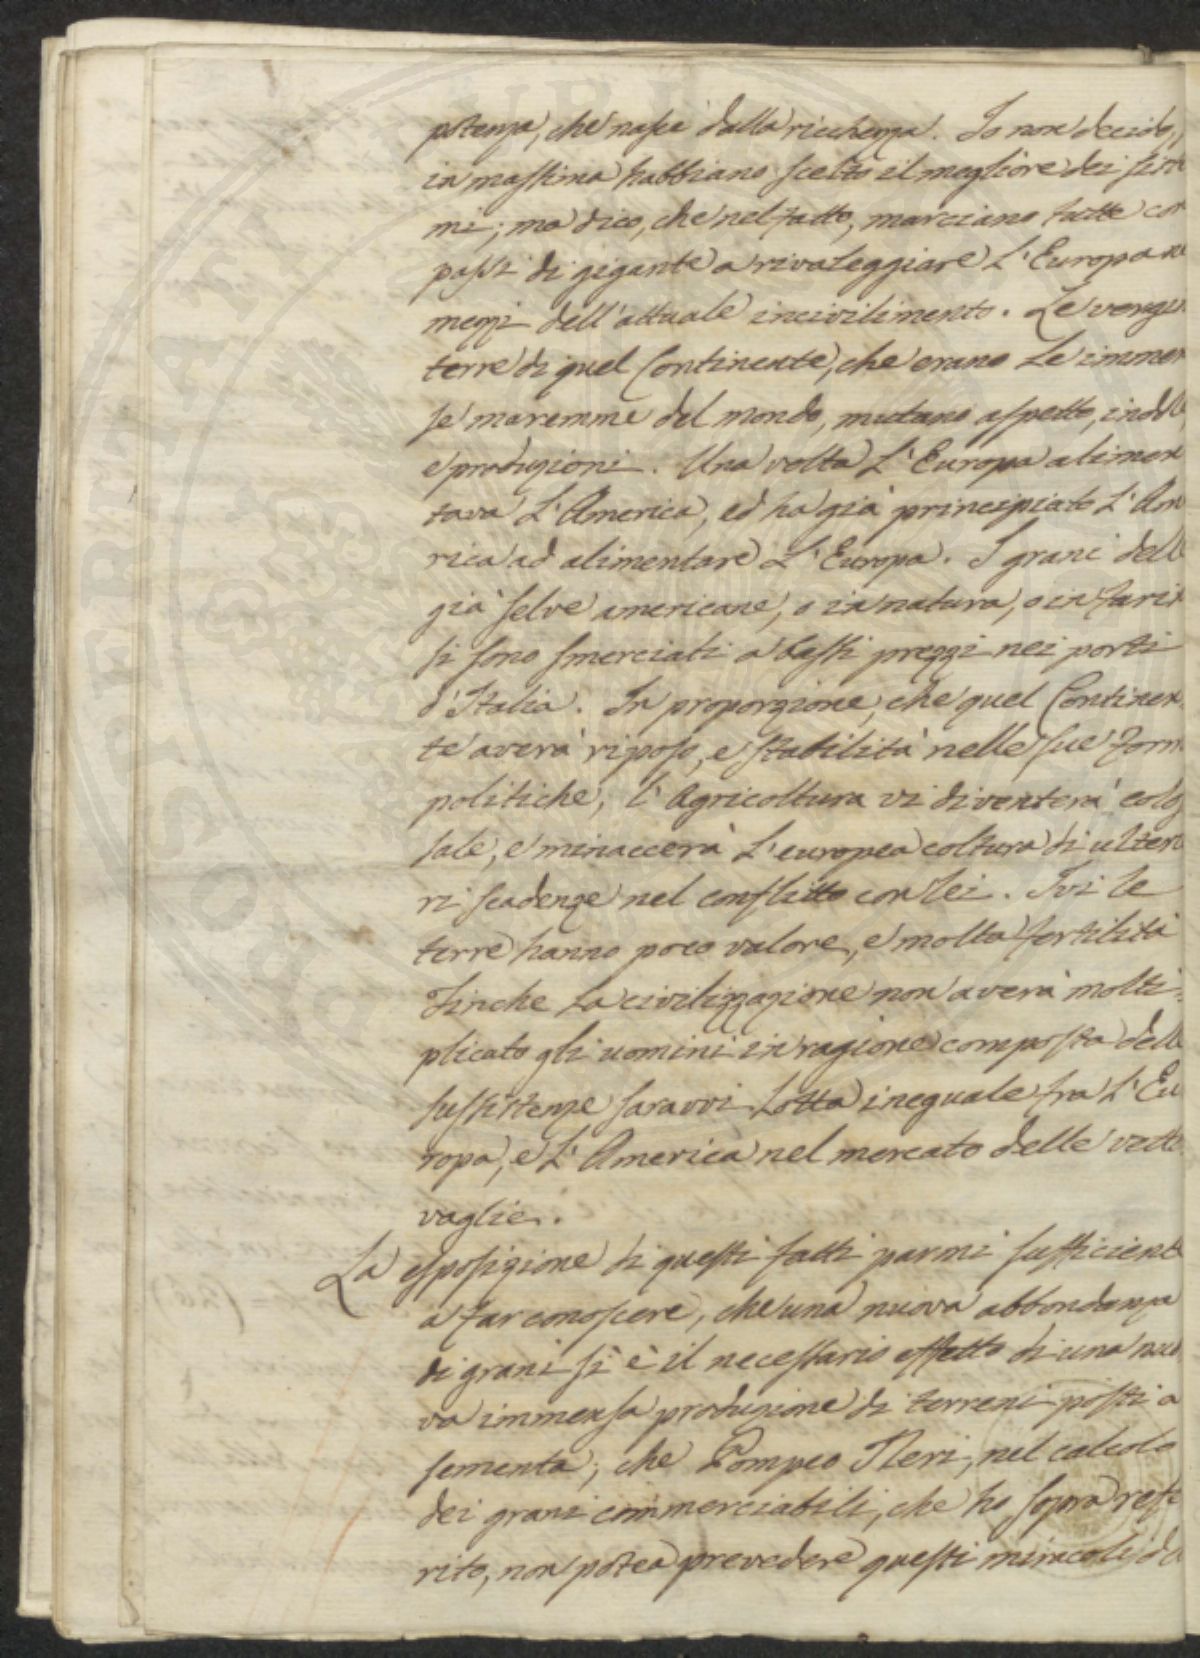 potenza, che nasce dalla ricchezza. Io non decido,
in massima habbiano scelto il megliore dei siste
mi; ma dico, che nel fatto, marciano tutte con
passi di gigante a rivaleggiare L'Europa ne
mezzi dell'attuale incivilimento. Le vergi
terre di quel Continente, che erano Le immen
se maremme del mondo, mutano aspetto, indole
e produzioni. Una volta L'Europa alimen
tava L'America, ed ha già principiato L'Am
rica ad alimentare L'Europa. I grani delle
già selve americane, o in natura, o in farin
si sono smerciati a bassi prezzi nei porti
d'Italia. In proporzione, che quel Continen
te averà riposo, e stabilità nelle sue form
politiche, l'Agricoltura vi diventerà colos
sale, e minaccerà L'europea coltura di ulterio
ri scadenze nel conflitto con lei. Ivi le
terre hanno poco valore, e molta fertilità
Finche La civilizzazione non averà molti=
plicato gli uomini in ragione composta delle
sussistenze saravvi Lotta ineguale fra L'Eu
ropa, e L'America nel mercato delle vetto
vaglie.
La esposizione di questi fatti parmi sufficiente
a far conoscere, che una nuova abbondanza
di grani si è il necessario effetto di una nuo
va immensa produzione di terreni posti a
sementa; che Pompeo Neri, nel calcolo
dei grani commerciabili, che ho sopra refe
rito, non potea prevedere questi miracoli d